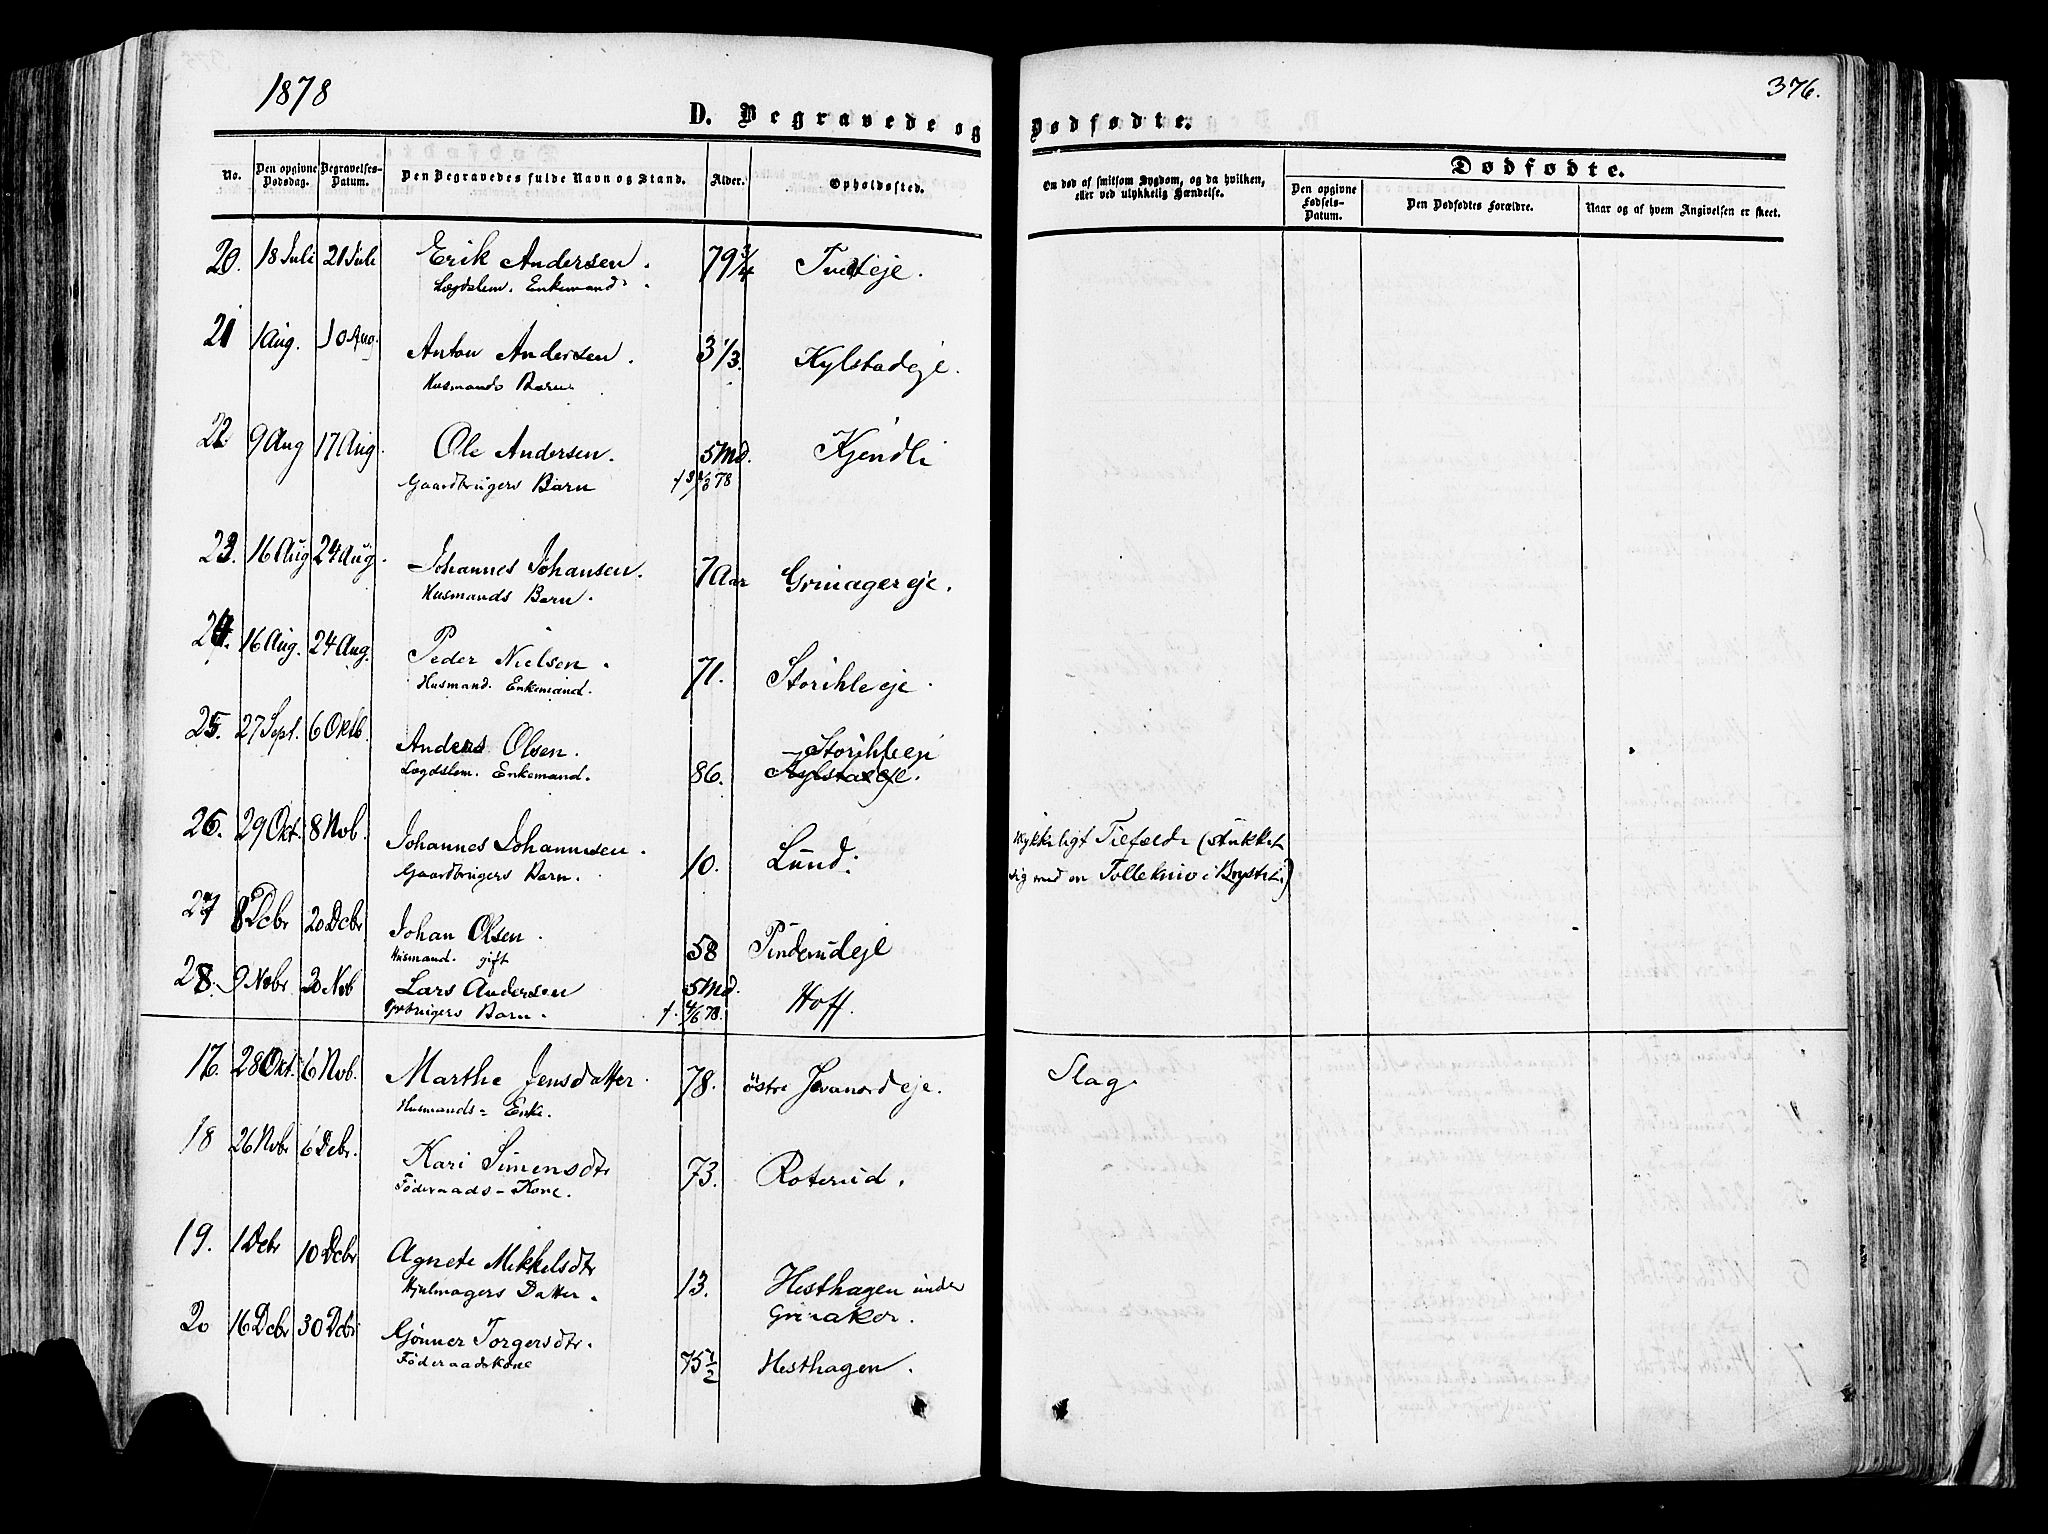 1878
376.
D. Begravede og Dødfødte.
No.
Den opgivne Dødsdag.
Begravelses-Datum.
Den Begravedes fulde Navn og Stand.
Alder.
Opholdssted.
Om død af smitsom Sygdom, og da hvilken, eller ved ulykkelig Hændelse.
Dødfødte.
Den opgivne Fødsels-Datum.
Den Dødfødtes Forældre.
Naar og af hvem Angivelsen er skeet.
20. 18 Juli 21 Juli Erik Andersen. 79 3/4
Lægdslem. Enkemand.
21 1 Aug. 10 Aug. Anton Andersen. 3 1/3. Kylstadeje.
Husmands Barn.
22 9 Aug 17 Aug. Ole Andersen. 5 Md. Kjendli
Gaardbrugers Barn
23. 16 Aug 24 Aug. Johannes Johansen. 7 Aar Grinagereje.
Husmands Barn.
24. 16 Aug. 24 Aug. Peder Nielsen. 71. Storihleeje.
Husmand. Enkemand.
25. 27 Sept. 6 Oktb. Anders Olsen. Storihleeje
Lægdslem. Enkemand. 86. Kylstadeje.
26. 29 Okt. 8 Nob. Johannes Johannesen. 10. Lund. Ulykkeligt Tilfælde (stukket
Gaardbrugers Barn. sig med en Tollekniv i Brystet)
27 8 Dcbr 20 Dcbr Johan Olsen. 58 Pinderudeje
Husmand. gift
28. 9 Nobr 20 Nob Lars Andersen 5 Md. Hoff.
Grbrugers Barn. f. 4/6 78.
17. 28 Okt. 6 Nob. Marthe Jensdatter. 78. östre Jevanordeje. Slag.
Husmands- Enke.
18 26 Nobr 6 Dcbr. Kari Simensdtr 73. Roterud.
Föderaads-Kone.
19. 1 Dcbr 10 Dcbr Agnete Mikkelsdtr 13. Hesthagen under
Hjulmagers Datter. Grinaker.
20 16 Dcbr 30 Dcbr Gönner Torgersdtr. 75 1/2 Hesthagen.
Föderaadskone